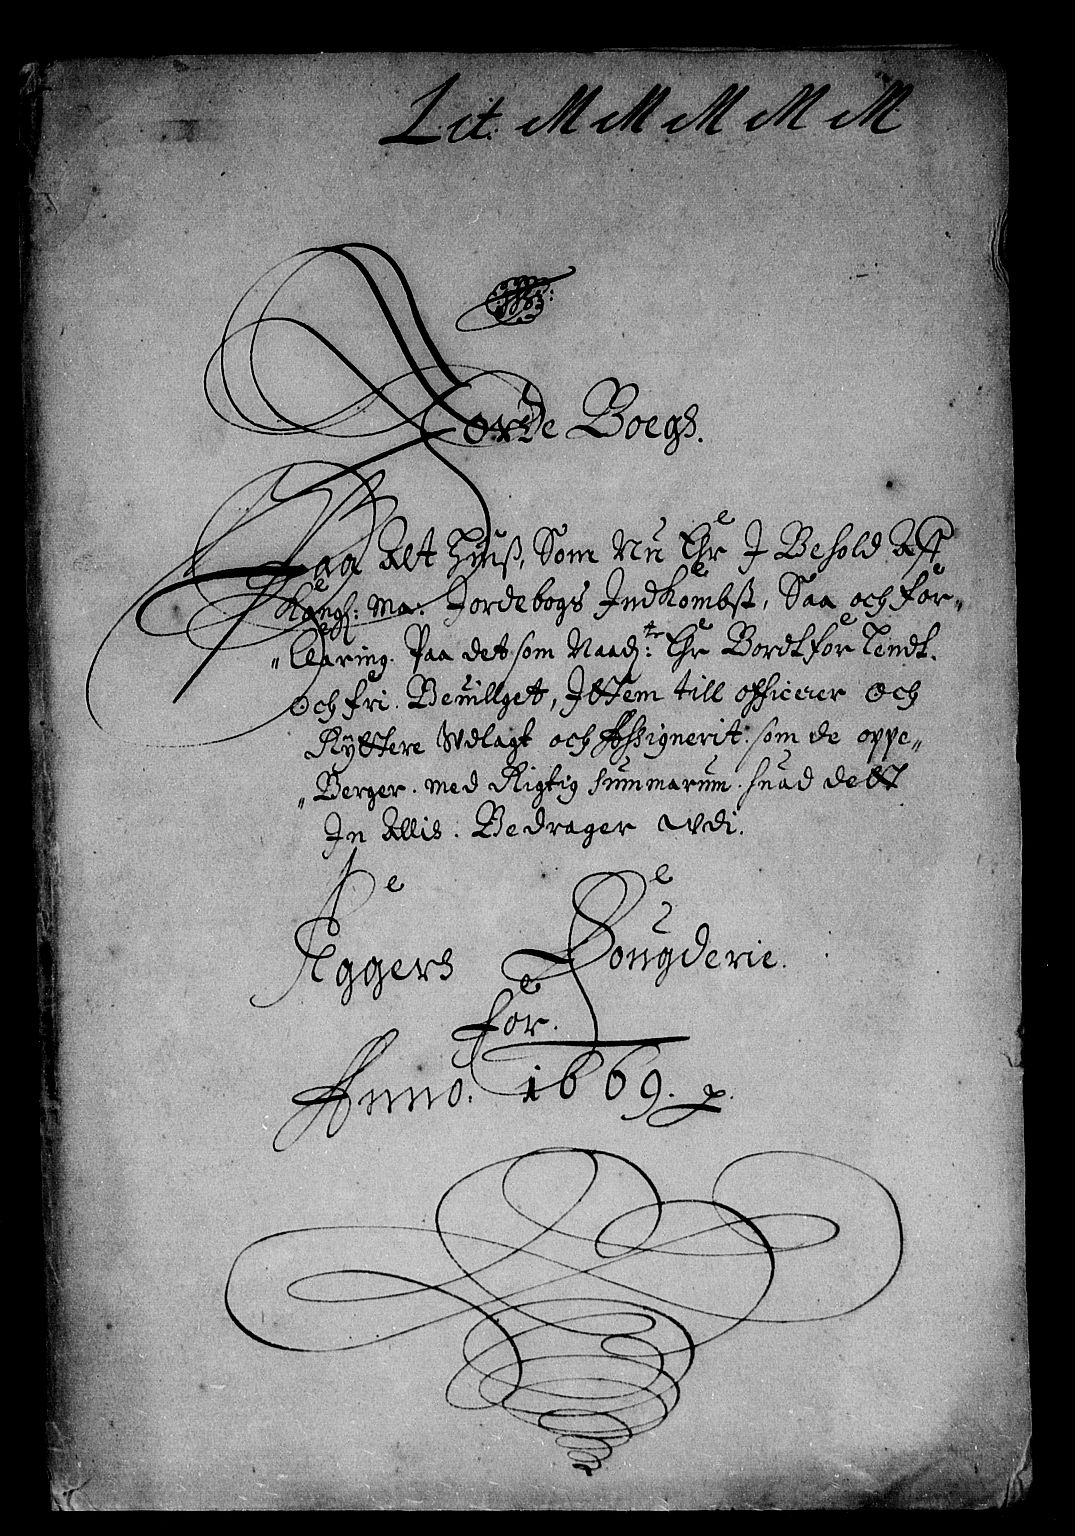 Lit. M M M M M
Jorde Boegs.
Paa Alt hues, Som Nu Ehr J Behold Aff
Kongl: Ma: Jordebogs Indkombst, Saa och for„
„Claring. Paa det som Naad: Ehr Bordt for Lendt.
och fri. Beuillget, Jttem till officerer och
Ryttere Wdlagt och Assignerit. som de oppe„
„Berger. med Rigtig summarum. huad dett
In Allis. Bedrager wdi.
Aggers Fougderie.
for.
Anno. 1669.